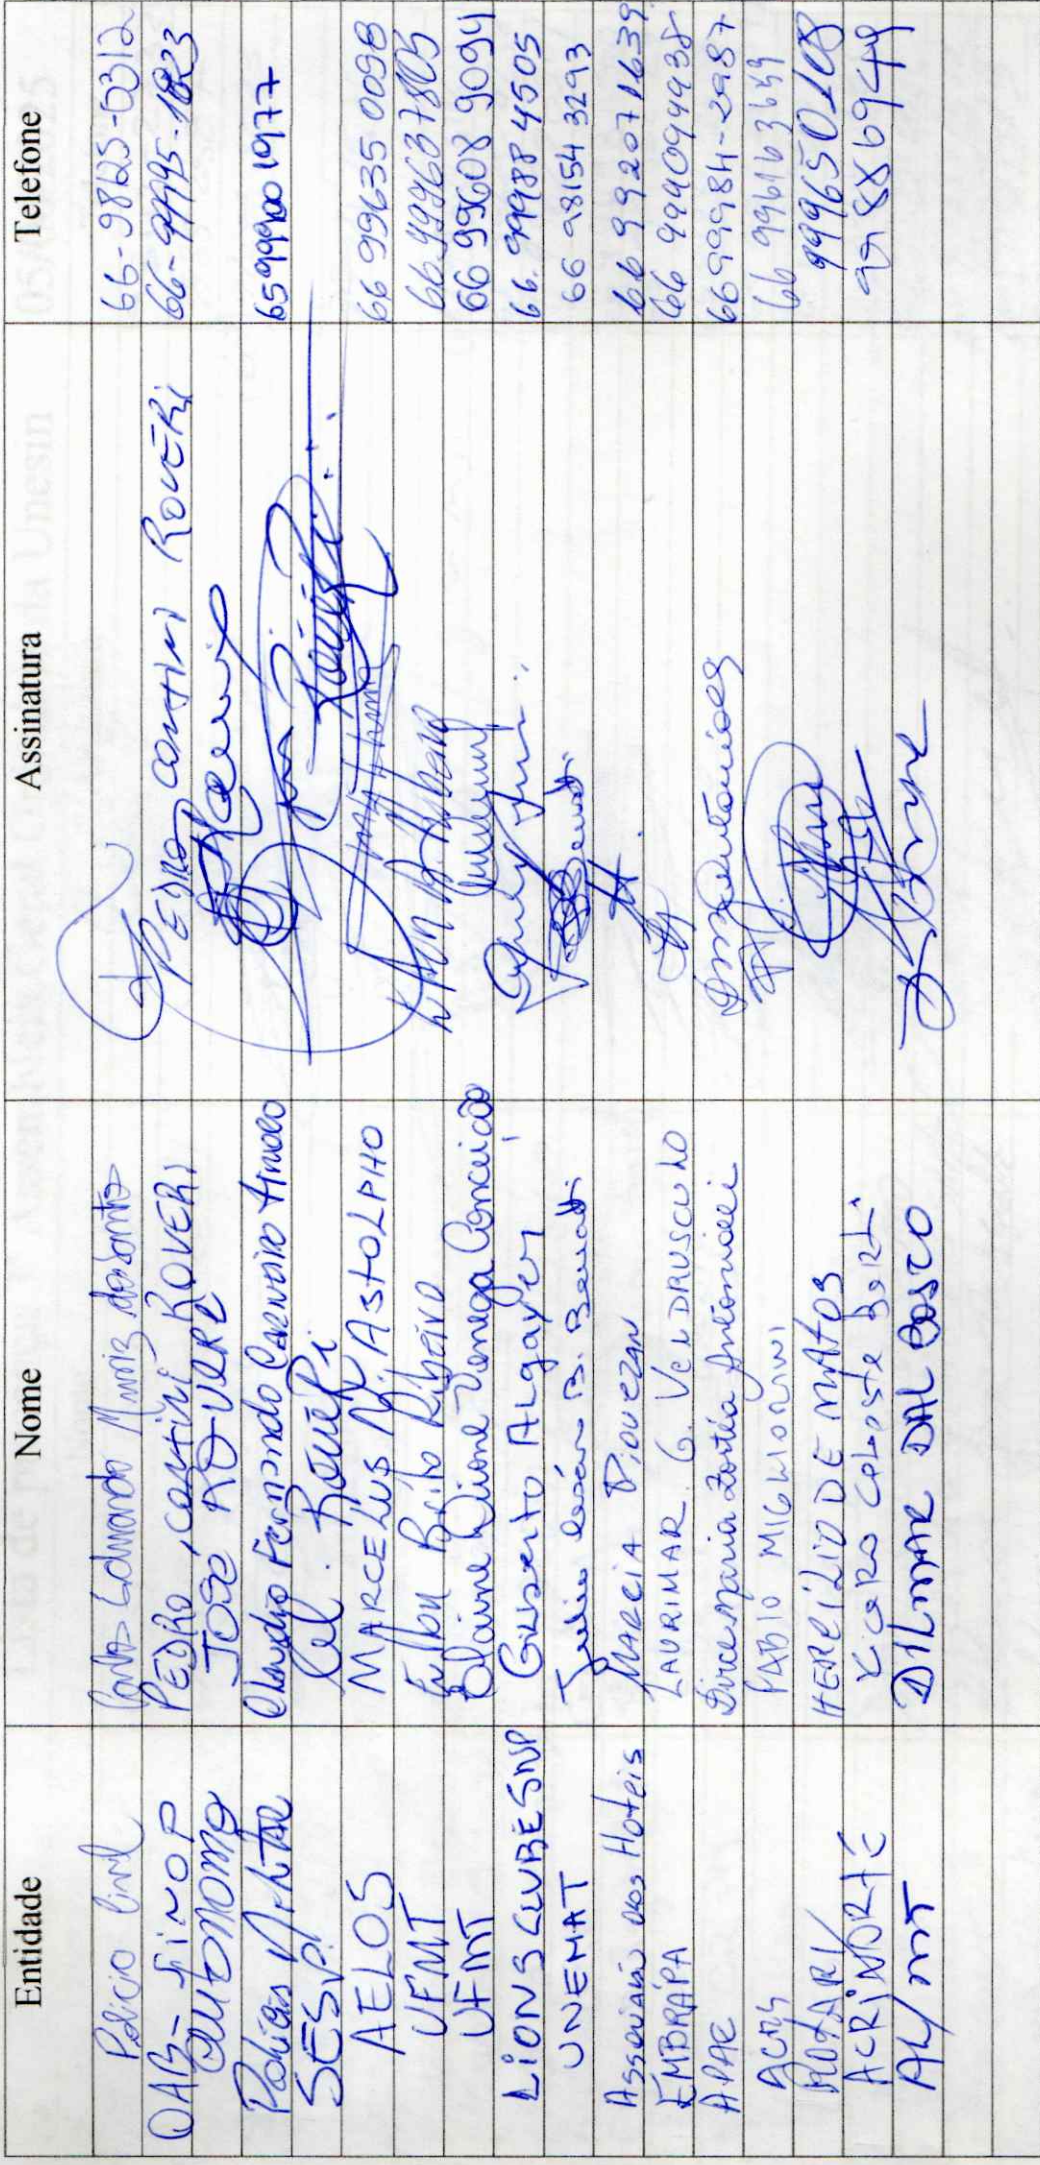 Entidade Nome Assinatura Telefone
Polícia Civil Carlos Eduardo Muniz dos Santos 66-98125-0312
OAB-SINOP PEDRO CONTINI ROVERI PEDRO CONTINI ROVERI 66-99995-1823
AUTONOMO JOSÉ ROVERI
Polícia Militar Claudio Fernando Carneiro Tinoco 65999001977
SESP Cel. Roveri
AELOS MARCELUS M. ASTOLPHO 66 99635 0098
UFMT Brito Ribeiro 66 999637805
UFMT Elaine Dione Venega Conceição 66 99608 9094
LIONS CLUBE SNP GILBERTO ALGAYER 66. 99988 4505
UNEMAT Julio Cesar B. Benatti 66 98154 3293
Associação dos Hoteis MARCIA PIOVEZAN 66 9 9207 1639
EMBRAPA LAURIMAR G. VENDRUSCULO 66 999094938
APAE Dirce Maria Zortéa Antoniolli 66 99984-2987
PABIO MIGLIORINI 66 996163649
ROTARY HERCÍLIO DE MATOS 999650108
ACRINORTE
AL/MT DILMAR DAL BOSCO